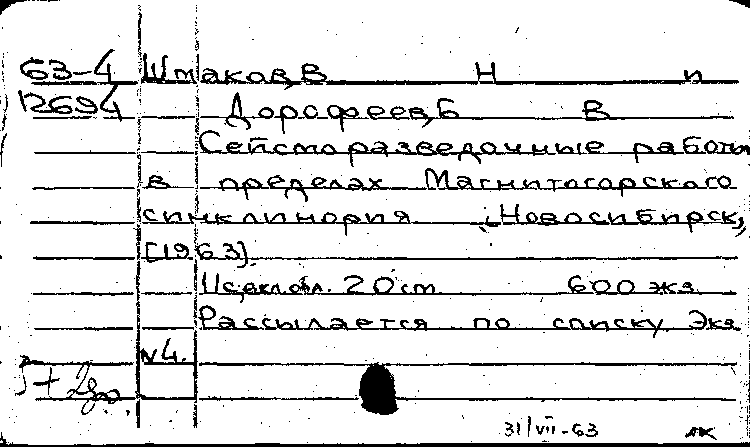 63-4 Шмаков, В Н и
12694 Дорофеев, Б В
Сейсморазведочные работы
в пределах Магнитогорского
синклинория. Новосибирск,
[1963].
20 см 600 экз
Рассылается по списку. Экз
№4.
31/VII-63